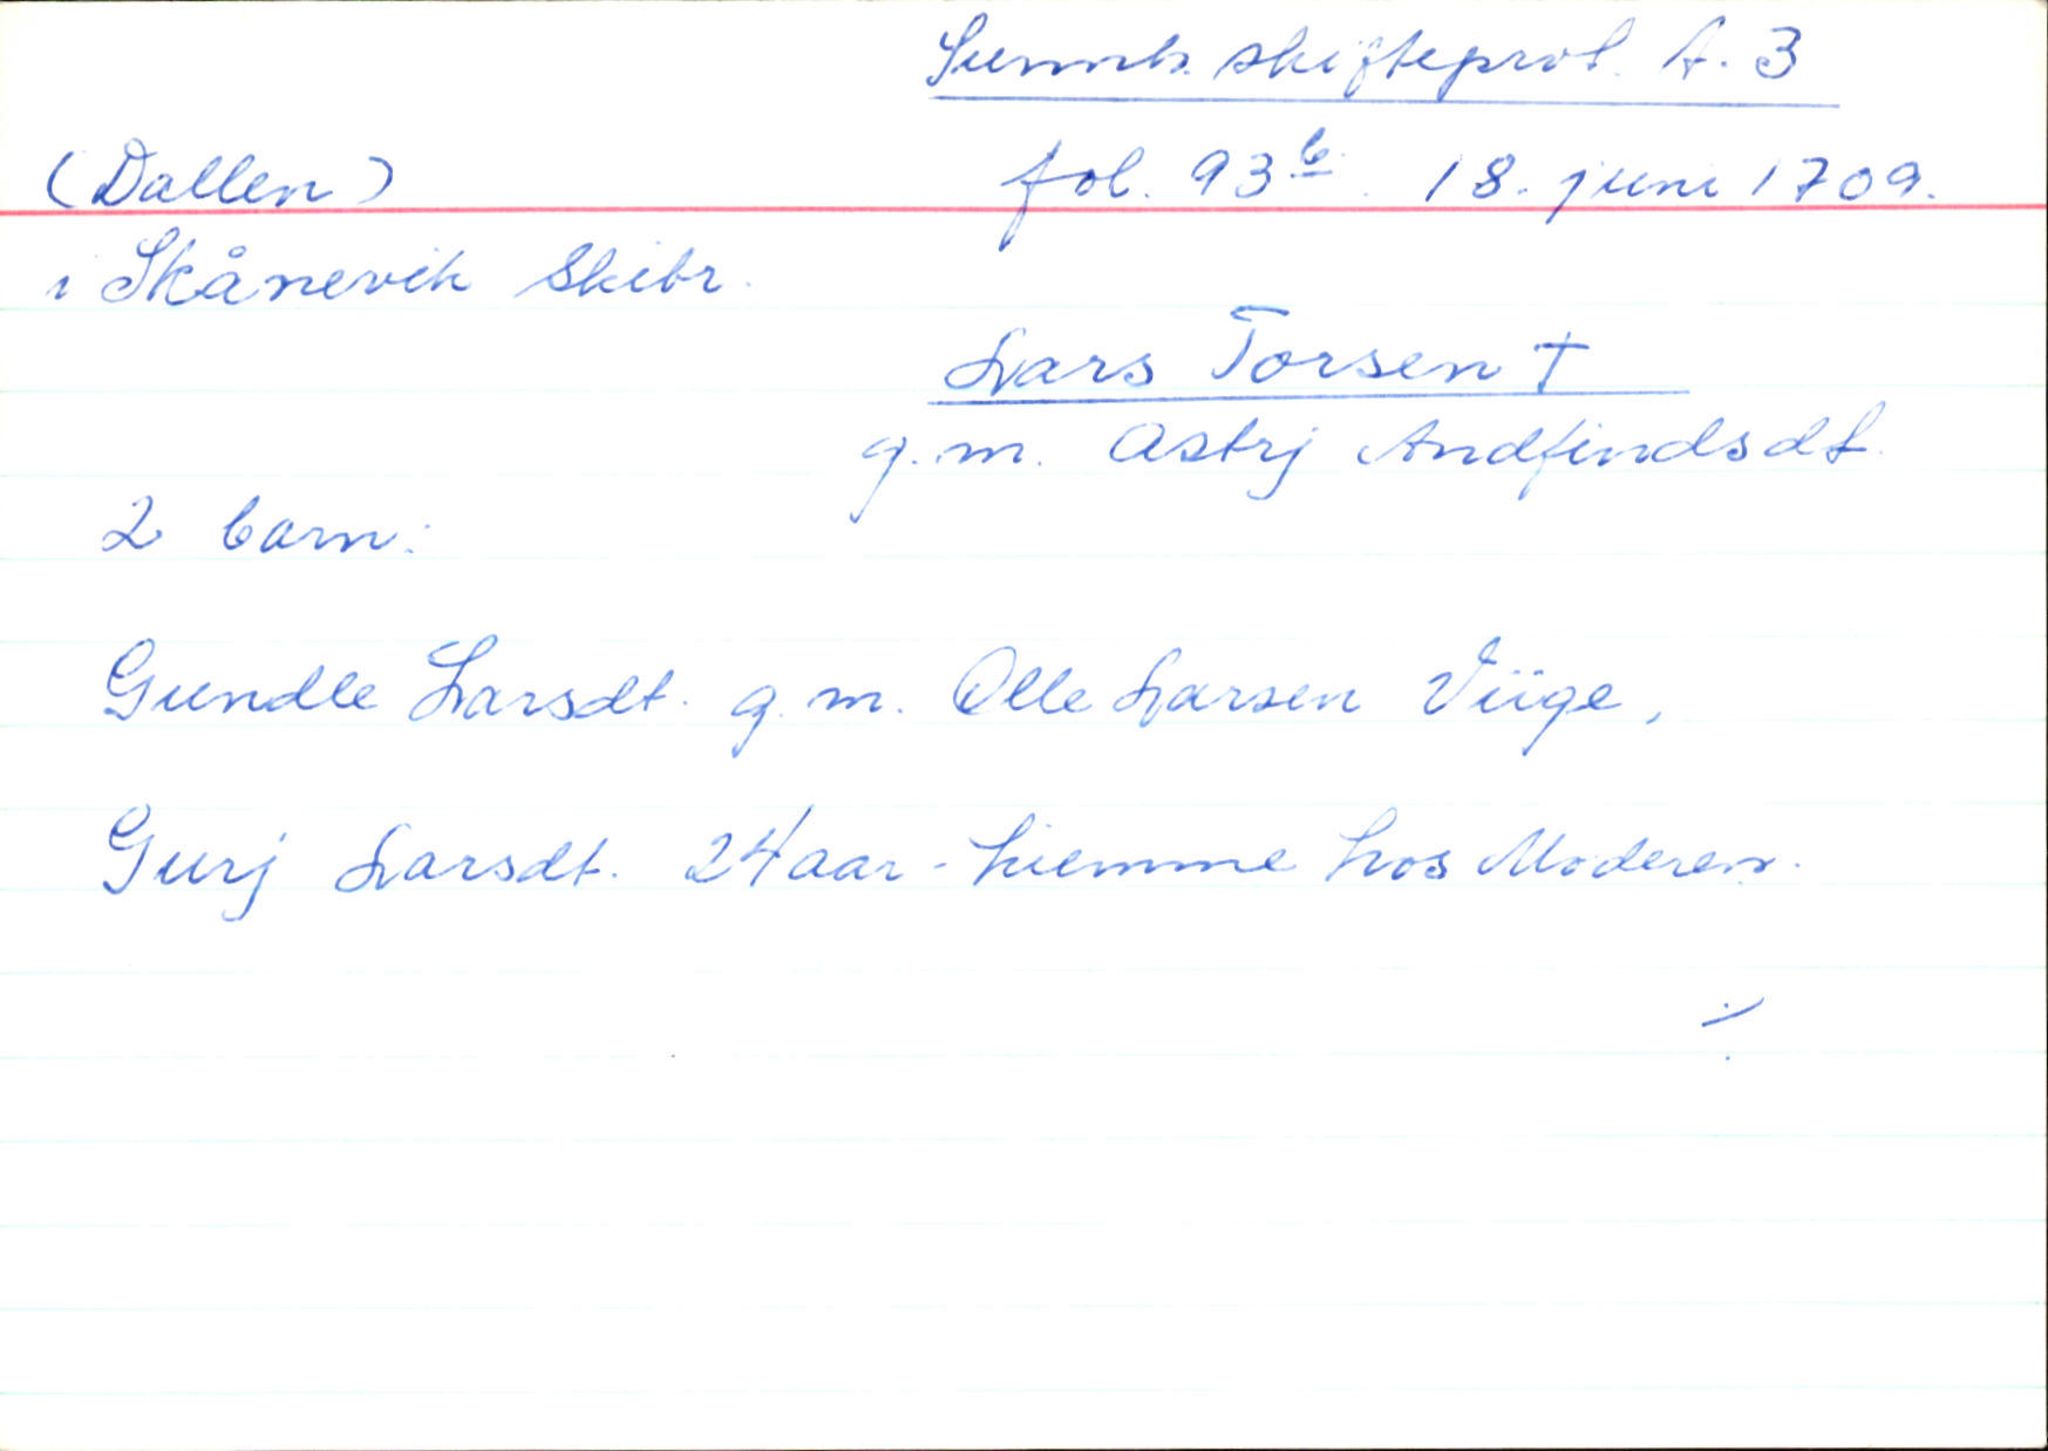 Sunnh. skifteprot. A. 3
(Dallen) fol. 93b. 18. juni 1709.
i Skånevik Skibr.
Lars Torsen †
g.m. Astrj Andfindsdt.
2 barn:
Gundle Larsdt. g.m. Olle Larsen Viige,
Gurj Larsdt. 24 aar - hiemme hos Moderen.
./.